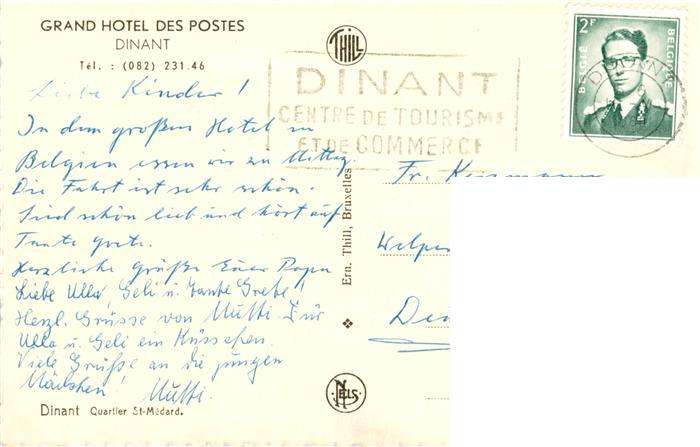 GRAND HOTEL DES POSTES
DINANT
Tél. : (082) 231.46
Liebe Kinder!
In dem großen Hotel in
Belgien essen wir zu Mittag.
Die Fahrt ist sehr schön.
Sind schön lieb und hört auf
Tante Grete.
Herzliche Grüße Euer Papa
Liebe Ulla, Geli u. Tante Grete!
Herzl. Grüsse von Mutti. Für
Ulla u. Geli ein Küsschen.
Viele Grüße an die jungen
Mädchen! Mutti.
Dinant Quartier St-Médard.
THILL
Ern. Thill, Bruxelles
NELS
DINANT
CENTRE DE TOURISME
ET DE COMMERCE
2F
BELGIË BELGIQUE
DINANT
Fr.